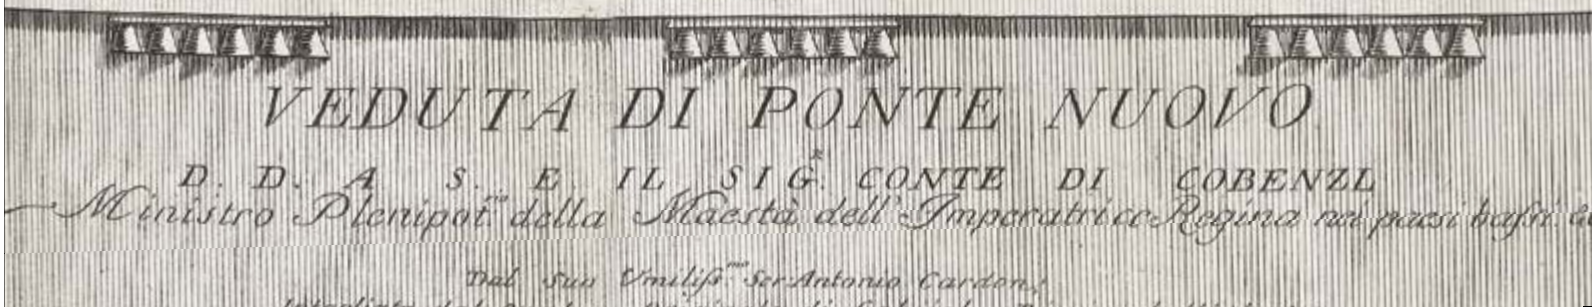 VEDUTA DI PONTE NUOVO
D. D. A S. E IL SIG.ʳ CONTE DI COBENZL
Ministro Plenipot.ᵐᵒ della Maestà dell' Imperatrice Regina nei paesi baſsi
Dal Suo Umiliſs.ᵐᵒ Ser Antonio Cardon